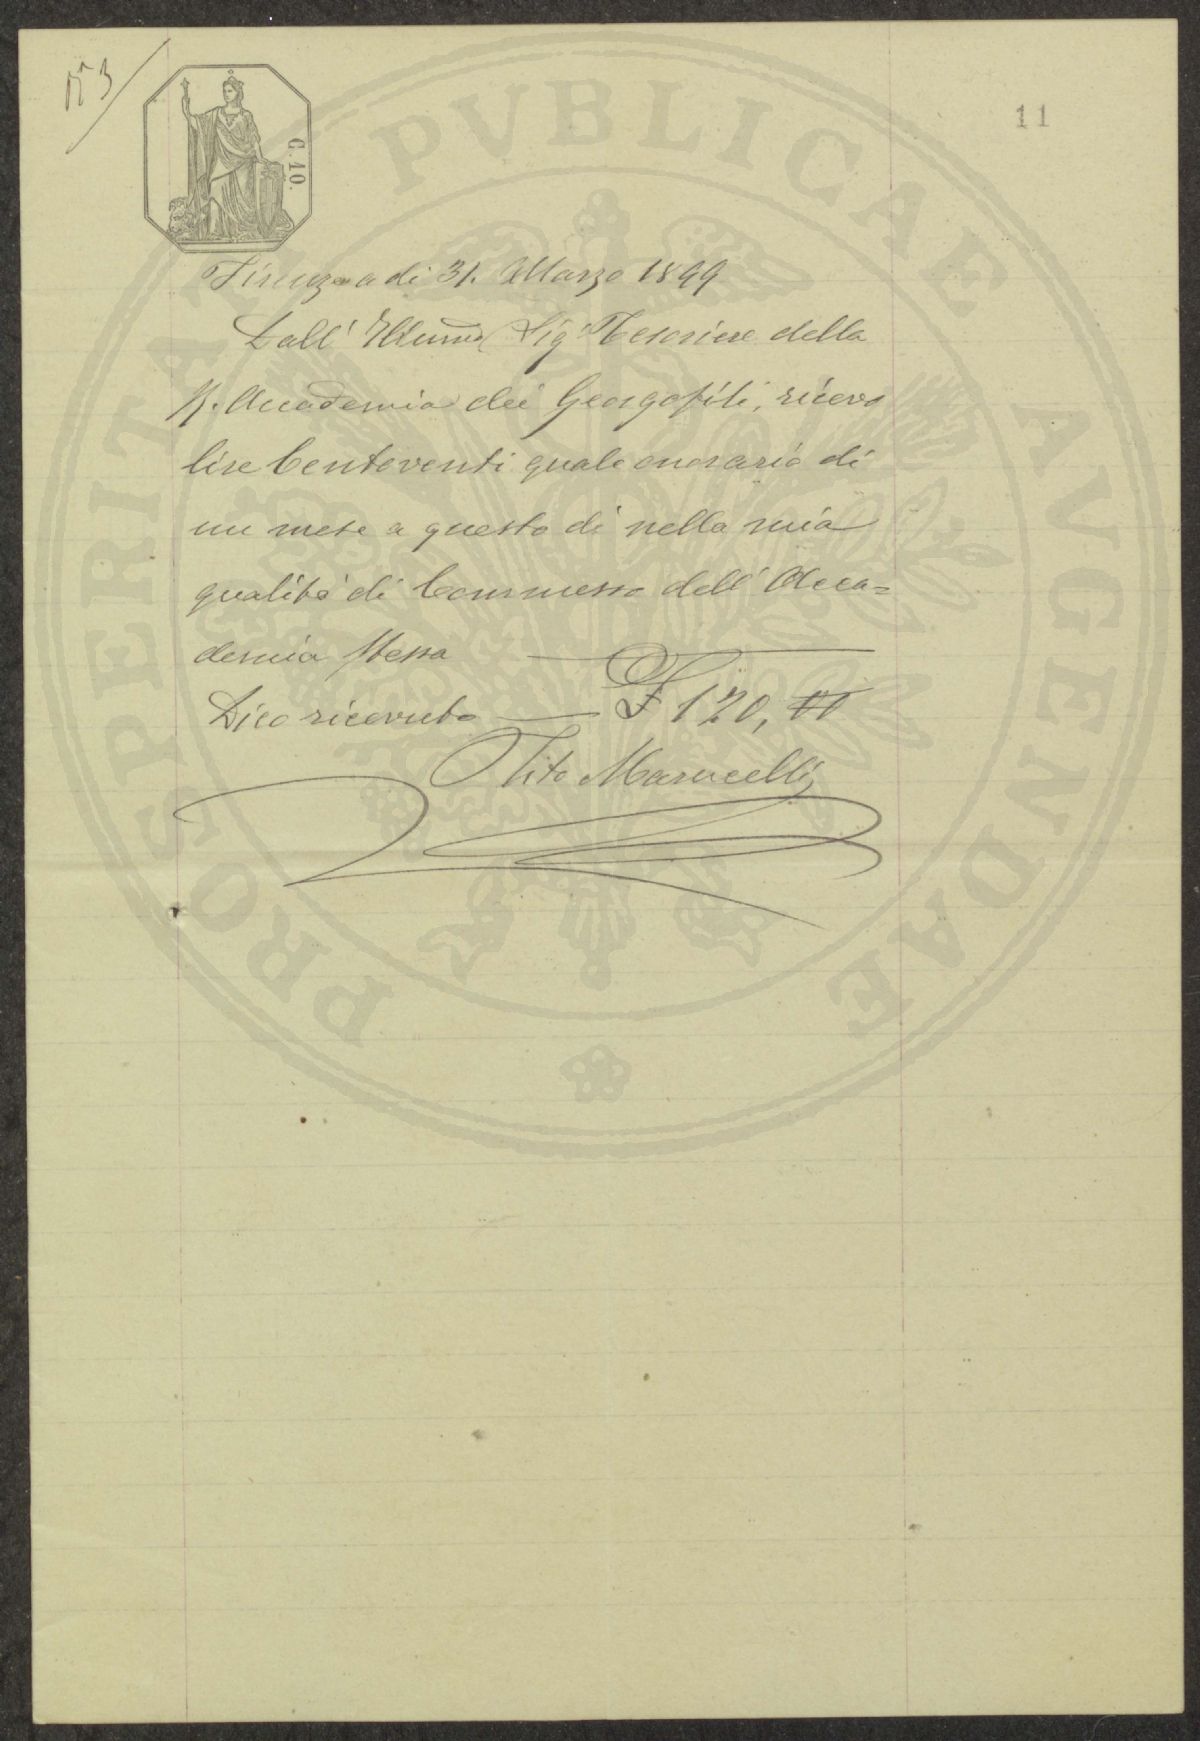 N° 3
C. 10.
11
Firenze a di 31. Marzo 1899
Dall' Illumo Sig. Tesoriere della
R. Accademia dei Georgofili, ricevo
lire Centoventi quale onorario di
un mese a questo dì nella mia
qualità di Commesso dell' Acca=
demia stessa
Dico ricevuto £ 120, 00
Tito Marucelli
PROSPERITATI PVBLICAE AVGENDAE